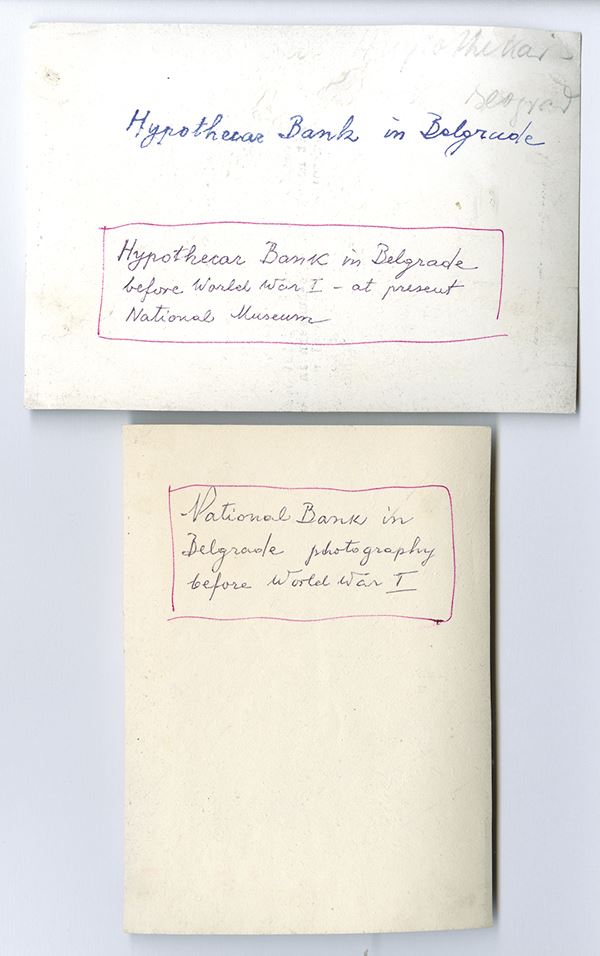 Beograd
Hypothecar Bank in Belgrade
Hypothecar Bank in Belgrade
before World War I – at present
National Museum
National Bank in
Belgrade photography
before World War I